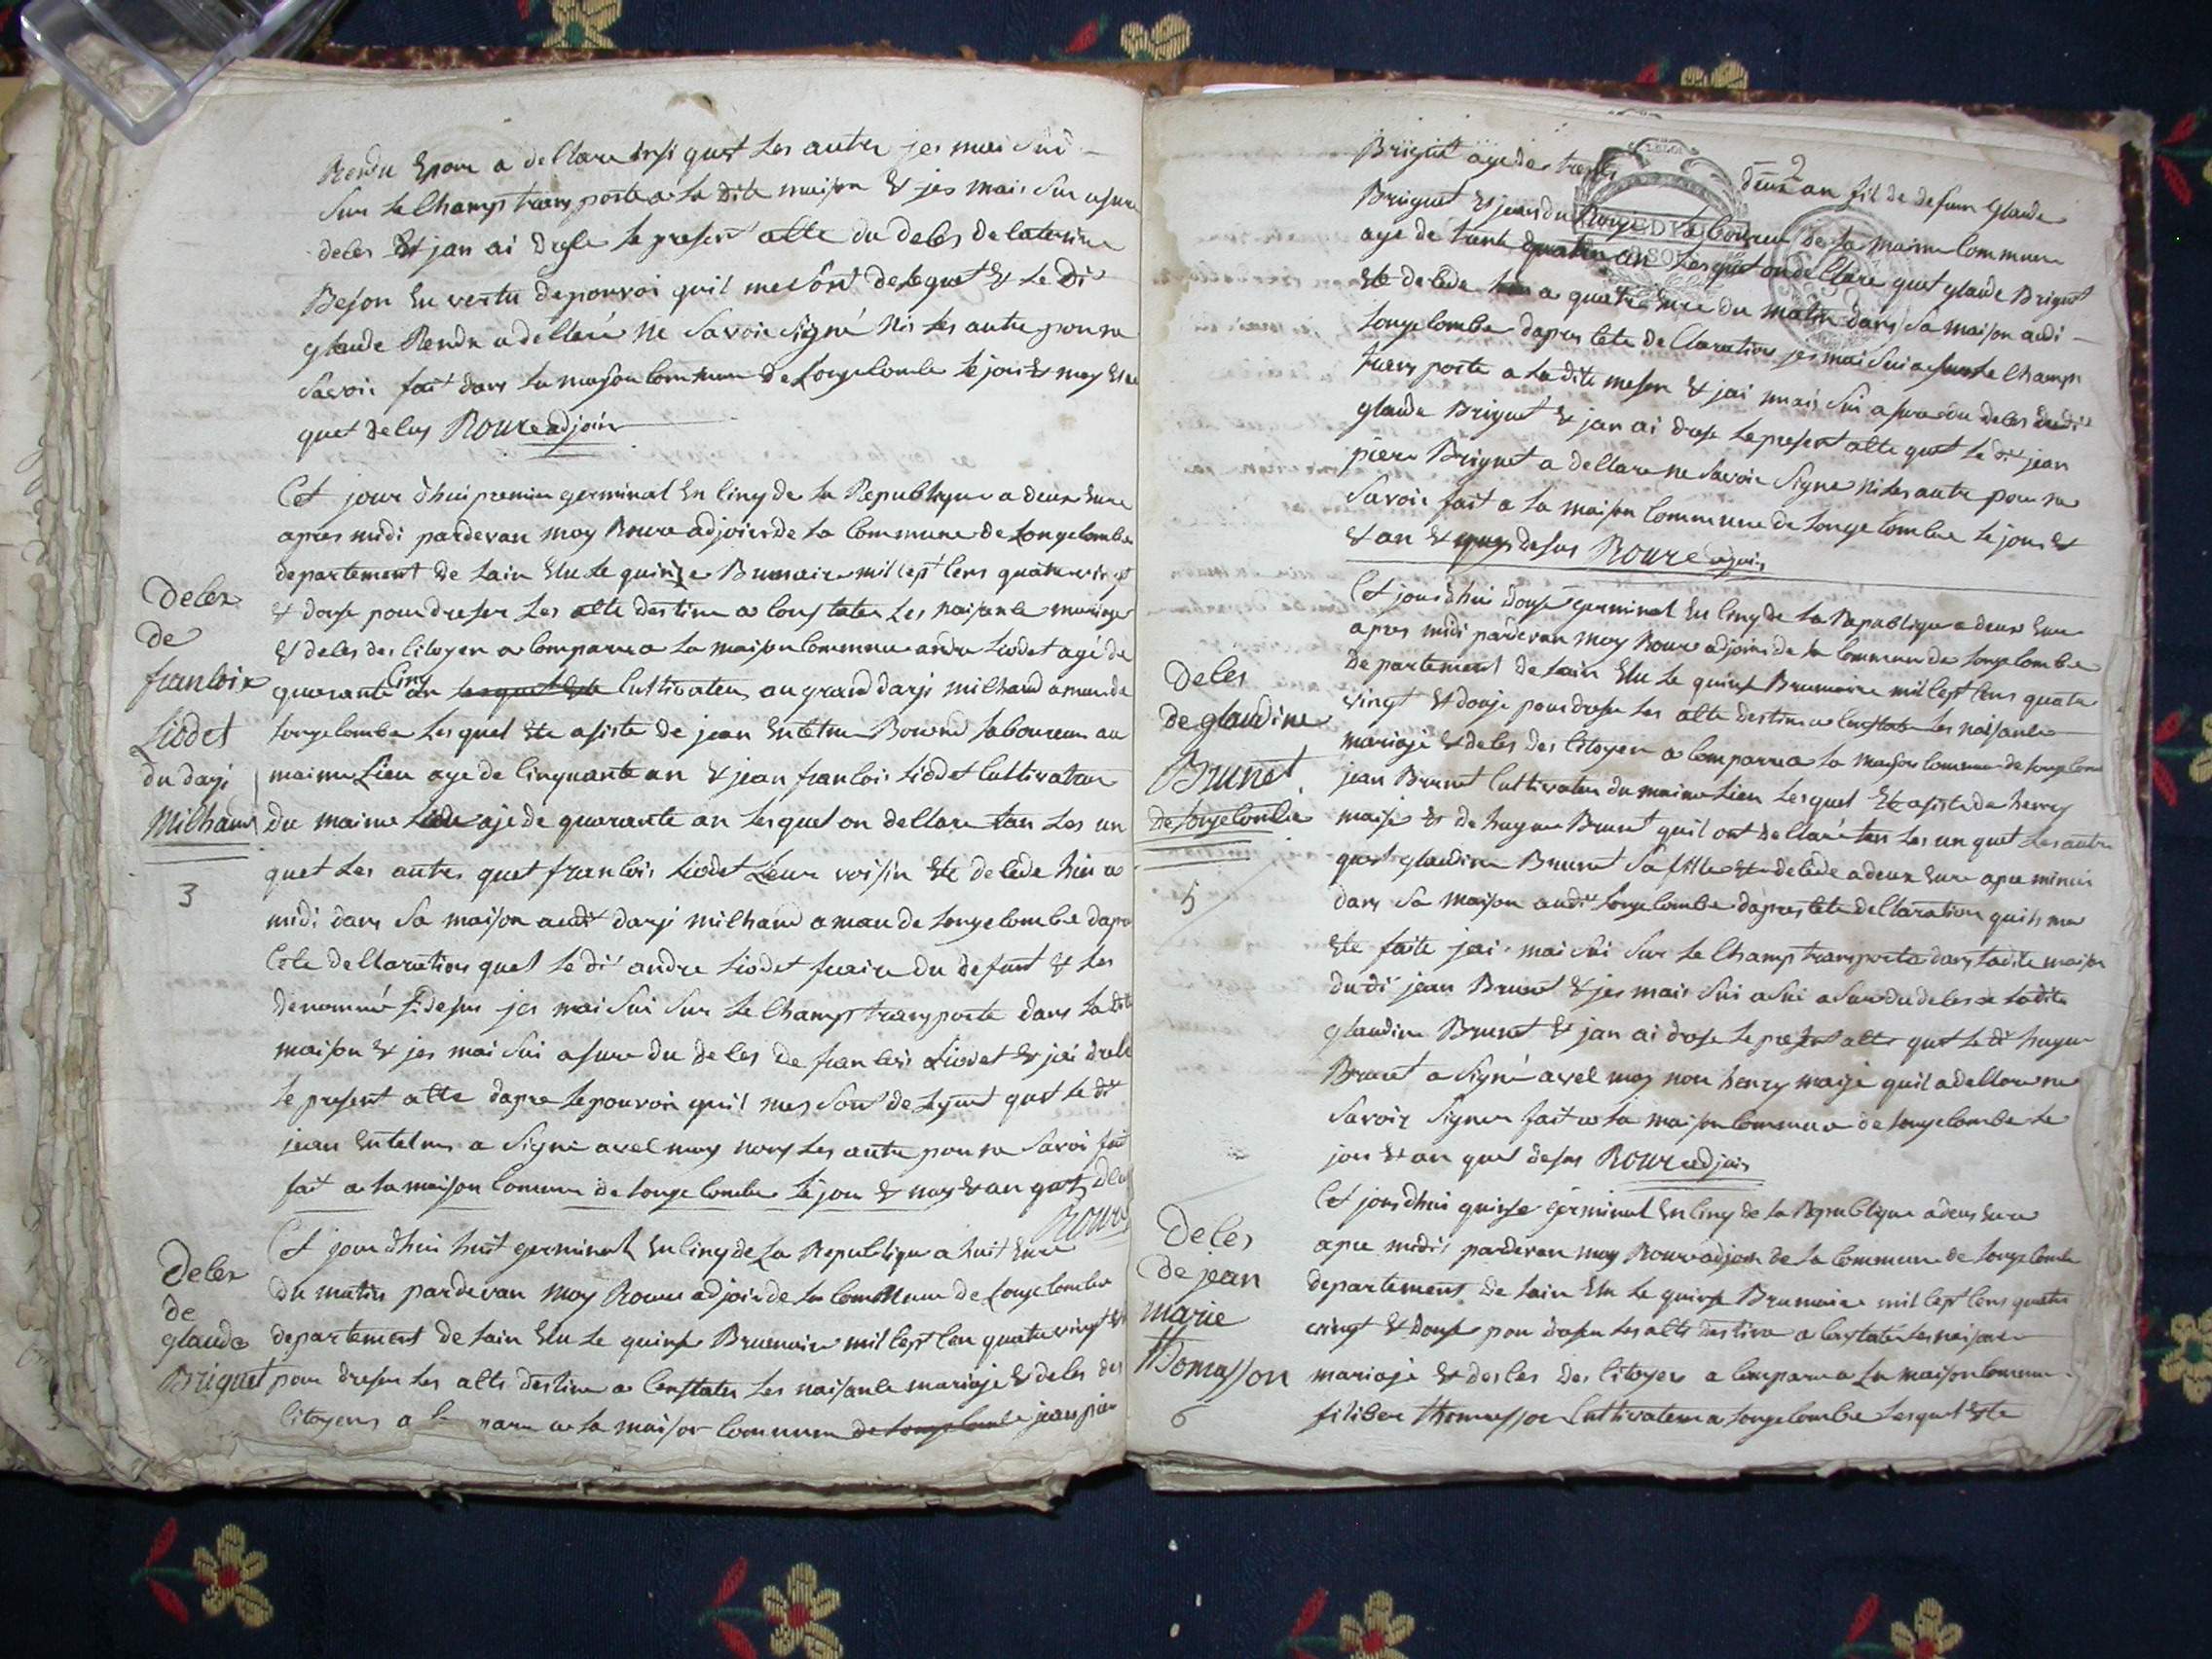 Rendu Epour a dellare insi quet les autre jes mai sui
sur le Champ transporte a la dite maison & jes mais sui asure
deles & jan ai dresse le present alte du deles de laterine
Beson en vertu de pouvoi quil me sont delequet & le di
glaude Rendu a dellaré ne savoir signé nis les autre pour ne
savoir fait dans la maison lommune de Longelombe le jour & moy &
quet delus Roure adjoin
Cet jour d'hui premier germinal En linq de la Republique a deux Eure
apres midi pardevan moy Roure adjoin de la Commune de Longelombe
departement de Lain Elu le quinze Brumaire mil sept sens quatrevingt
& douse pour dreser les alte destine a Constater les naisanse mariage
& deles des Citoyen a Comparu a la maison Commune andre Liodet agé de
quarante Cinq an lesquel Ete Cultivateur au grand darji milhaud amau de
longelombe lesquel Ete asiste de jean Entelme Bouvend laboureur au
maime Lieu age de Cinquante an & jean franlois Liodet Cultivateur
Du maime Lieu aje de quarante an lesquel on dellare tan les un
quet les autres quet franlois Liodet Leur voisin Ete delede hier a
midi dans sa maison audit darji milhaud amau de longelombe dapre
Cete dellaration quet le di andre Liodet fraire du defunt & les
denommé si desus jes mai sui sur le Champ transporte dans la dite
maison & jes mai sui asure du deles de franlois Liodet & jai dresse
le present alte dapre le pouvoir quil mes sont delequet quet le di
jean Entelme a signé avel moy nons les autre pour ne savoi
fait a la maison Comune de longelombe le jour & moy & an quet desus
Roure
Cet jour d'hui huit germinal En linq de la Republique a huit Eure
du matin pardevan moy Roure adjoin de la Commune de Longelombe
departement de Lain Elu le quinse Brumaire mil sept sen quatrevingt &
pour dreser les alte destine a Constater les naisanse mariaje & deles des
Citoyens a Comparu a la maison Commune de longelombe jean piere
Deles
de
franlois
Liodet
du darji
Milhaud
3
Deles
de
glaude
Briquet
2
Briquet age de trente deux an fil de defun glaude
Briquet & jean du Rouge laboureur de la maime Commune
age de trente quatre an lesquet on dellare quet glaude Briquet
Ete delede a quatre Eure du matin dans sa maison audi
longelombe dapres Cete dellaration jes mai sui sur le Champ
transporte a ladite meson & jai mais sui asure du deles dudi
glaude Briquet & jan ai drese le present alte quet le di jean
piere Briquet a dellare ne savoir signe ni les autre pour ne
savoir fait a la maison Commune de longelombe le jour &
& an & quet desus Roure adjoin
Cet jour d'hui douse germinal En linq de la Republique a deux Eure
apres midi pardevan moy Roure adjoin de la Commune de longelombe
departement de Lain Elu le quinse Brumaire mil sept sens quatre
vingt & douse pour dreser les alte destine a Constate les naisanse
mariaje & deles des Citoyen a Comparu a la maison Commune de longelombe
jean Brunet Cultivateur du maime Lieu lesquel Ete asiste de henry
maisje & de hugue Brunet quil ont dellaré tan les un quet les autre
quet glaudine Brunet sa fille Ete delede a deux Eure apre minui
dans sa maison audi longelombe dapres Cete dellaration quils ma
Ete faite jai mai sui sur le Champ transporte dans ladite maison
dudi jean Brunet & jes mais sui asui asure du deles de ladite
glaudine Brunet & jan ai drese le present alte quet le di hugue
Brunet a signé avel moy non henry maije quil a dellare ne
savoir signer fait a la maison Commune de longelombe le
jour & an quet desus Roure adjoin
Cet jour d'hui quinse germinal En linq de la Republique a deus Eure
apre midit pardevan moy Roure adjoin de la Commune de longelombe
departement de Lain Elu le quinse Brumaire mil sept sens quatre
vingt & douse pour dreser les alte destine a Constate les naisanse
mariaje & desles des Citoyen a Comparu a la maison Commune
filiber thomasson Cultivateur a longelombe lesquel Ete
Deles
de glaudine
Brunet
de longelombe
5
Deles
de jean
marie
thomasson
6